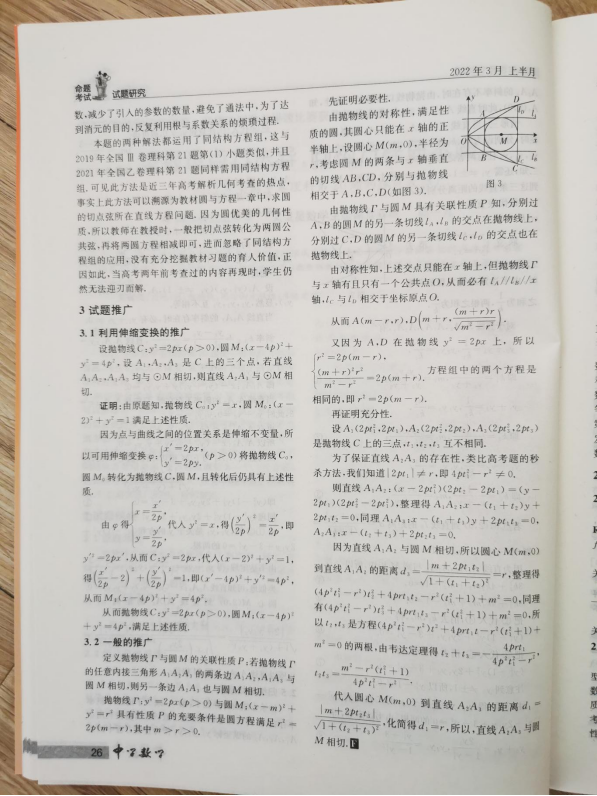 命题
考试
试题研究
2022年3月 上半月
数,减少了引入的参数的数量,避免了通法中,为了达
到消元的目的,反复利用根与系数关系的烦琐过程.
本题的两种解法都运用了同结构方程组,这与
2019年全国Ⅲ卷理科第21题第(1)小题类似,并且
2021年全国乙卷理科第21题同样需用同结构方程
组.可见此方法是近三年高考解析几何考查的热点,
事实上此方法可以溯源为教材圆与方程一章中,求圆
的切点弦所在直线方程问题.因为圆优美的几何性
质,所以教师在教授时,一般把切点弦转化为两圆公
共弦,再将两圆方程相减即可,进而忽略了同结构方
程组的应用,没有充分挖掘教材习题的育人价值,正
因如此,当高考两年前考查过的内容再现时,学生仍
然无法迎刃而解.
3 试题推广
3.1 利用伸缩变换的推广
设抛物线C:y²=2px(p>0),圆M:(x-4p)²+
y²=4p²,设A₁,A₂,A₃是C上的三个点,若直线
A₁A₂,A₁A₃均与⊙M相切,则直线A₂A₃与⊙M相
切.
证明:由原题知,抛物线C₀:y²=x,圆M₀:(x-
2)²+y²=1满足上述性质.
因为点与曲线之间的位置关系是伸缩不变量,所
以可用伸缩变换φ:{x′=2px, y′=2py, (p>0)将抛物线C₀,
圆M₀转化为抛物线C,圆M,且转化后仍具有上述性
质.
由φ得{x=x′/2p, y=y′/2p, 代入y²=x,得(y′/2p)²=x′/2p,即
y′²=2px′,从而C:y²=2px,代入(x-2)²+y²=1,
得(x′/2p-2)²+(y′/2p)²=1,即(x′-4p)²+y′²=4p²,
从而M:(x-4p)²+y²=4p².
从而抛物线C:y²=2px(p>0),圆M:(x-4p)²
+y²=4p²,满足上述性质.
3.2 一般的推广
定义抛物线Γ与圆M的关联性质P:若抛物线Γ
的任意内接三角形A₁A₂A₃的两条边A₁A₂,A₁A₃与
圆M相切,则另一条边A₂A₃也与圆M相切.
抛物线Γ:y²=2px(p>0)与圆M:(x-m)²+
y²=r²具有性质P的充要条件是圆方程满足r²=
2p(m-r),其中m>r>0.
先证明必要性.
由抛物线的对称性,满足性
质的圆,其圆心只能在x轴的正
半轴上,设圆心M(m,0),半径为
r,考虑圆M的两条与x轴垂直
的切线AB,CD,分别与抛物线
相交于A,B,C,D(如图3).
y
D
A
O
M
x
B
C
图3
由抛物线Γ与圆M具有关联性质P知,分别过
A,B的圆M的另一条切线l_A,l_B的交点在抛物线上,
分别过C,D的圆M的另一条切线l_C,l_D的交点也在
抛物线上.
由对称性知,上述交点只能在x轴上,但抛物线Γ
与x轴有且只有一个公共点O,从而必有l_A//l_B//x
轴,l_C与l_D相交于坐标原点O.
从而A(m-r,r),D(m+r,(m+r)r/√(m²-r²)).
又因为A,D在抛物线y²=2px上,所以
{r²=2p(m-r),
(m+r)²r²/(m²-r²)=2p(m+r). 方程组中的两个方程是
相同的,即r²=2p(m-r).
再证明充分性.
设A₁(2pt₁²,2pt₁),A₂(2pt₂²,2pt₂),A₃(2pt₃²,2pt₃)
是抛物线C上的三点,t₁,t₂,t₃互不相同.
为了保证直线A₂A₃的存在性,类比高考题的秒
杀方法,我们知道|2pt₁|≠r,即4pt₁²-r²≠0.
则直线A₁A₂:(x-2pt₁²)(2pt₂-2pt₁)=(y-
2pt₁)(2pt₂²-2pt₁²),整理得A₁A₂:x-(t₁+t₂)y+
2pt₁t₂=0,同理A₁A₃:x-(t₁+t₃)y+2pt₁t₃=0,
A₂A₃:x-(t₂+t₃)+2pt₂t₃=0.
因为直线A₁A₂与圆M相切,所以圆心M(m,0)
到直线A₁A₂的距离d₂=|m+2pt₁t₂|/√(1+(t₁+t₂)²)=r,整理得
(4p²t₁²-r²)t₂²+4prt₁t₂-r²(t₁²+1)+m²=0,同理
有(4p²t₁²-r²)t₃²+4prt₁t₃-r²(t₁²+1)+m²=0,所
以t₂,t₃是方程(4p²t₁²-r²)t²+4prt₁t-r²(t₁²+1)+
m²=0的两根,由韦达定理得t₂+t₃=-4prt₁/(4p²t₁²-r²),
t₂t₃=(m²-r²(t₁²+1))/(4p²t₁²-r²).
代入圆心M(m,0)到直线A₂A₃的距离d₁=
|m+2pt₂t₃|/√(1+(t₂+t₃)²),化简得d₁=r,所以,直线A₂A₃与圆
M相切.
26 中学数学